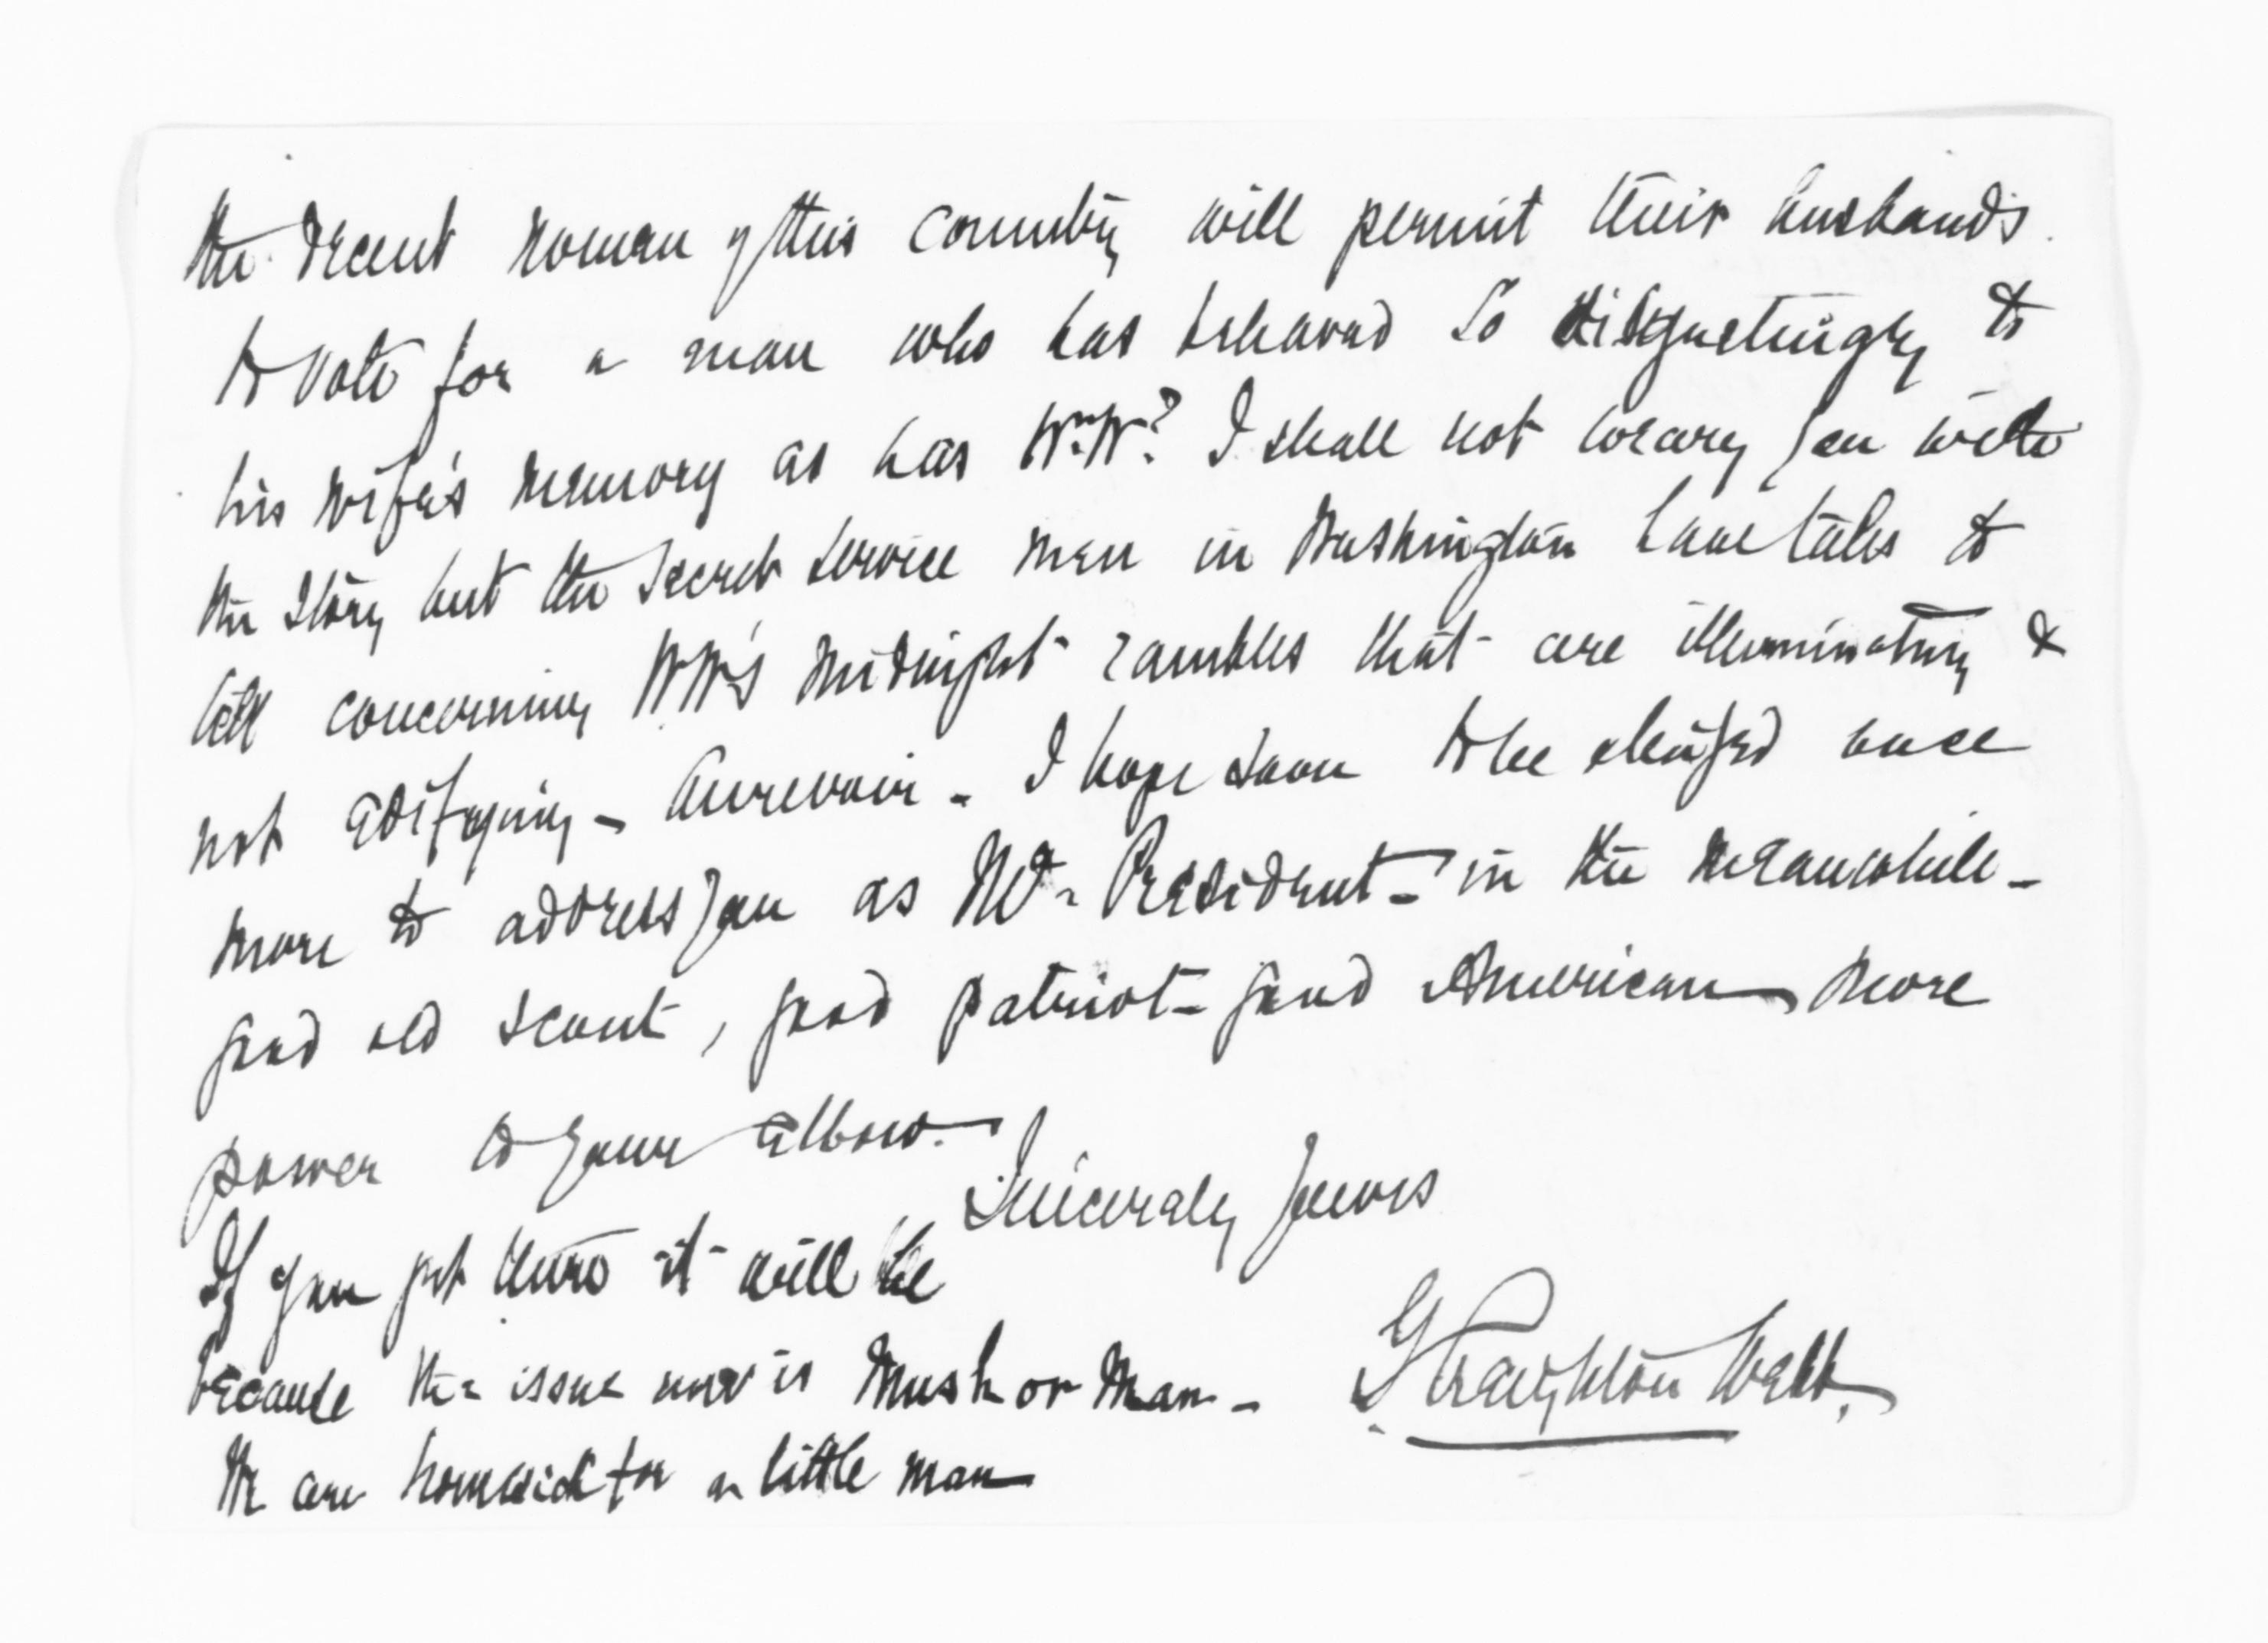 the decent women of this country will permit their husbands
to vote for a man who has behaved so disgustingly to
his wife's memory as has W.W.? I shall not weary you with
the story but the secret service men in Washington have tales to
tell concerning WW's midnight rambles that are illuminating &
not edifying - Aurevoir - I hope soon to be obliged once
more to address you as Mr. President - in the meanwhile -
good old scout, good patriot - good American more
power to your elbow. -
Sincerely yours
G Creighton Webb.
If you get thro it will be
because the issue now is Mush or Man -
We are homesick for a little man